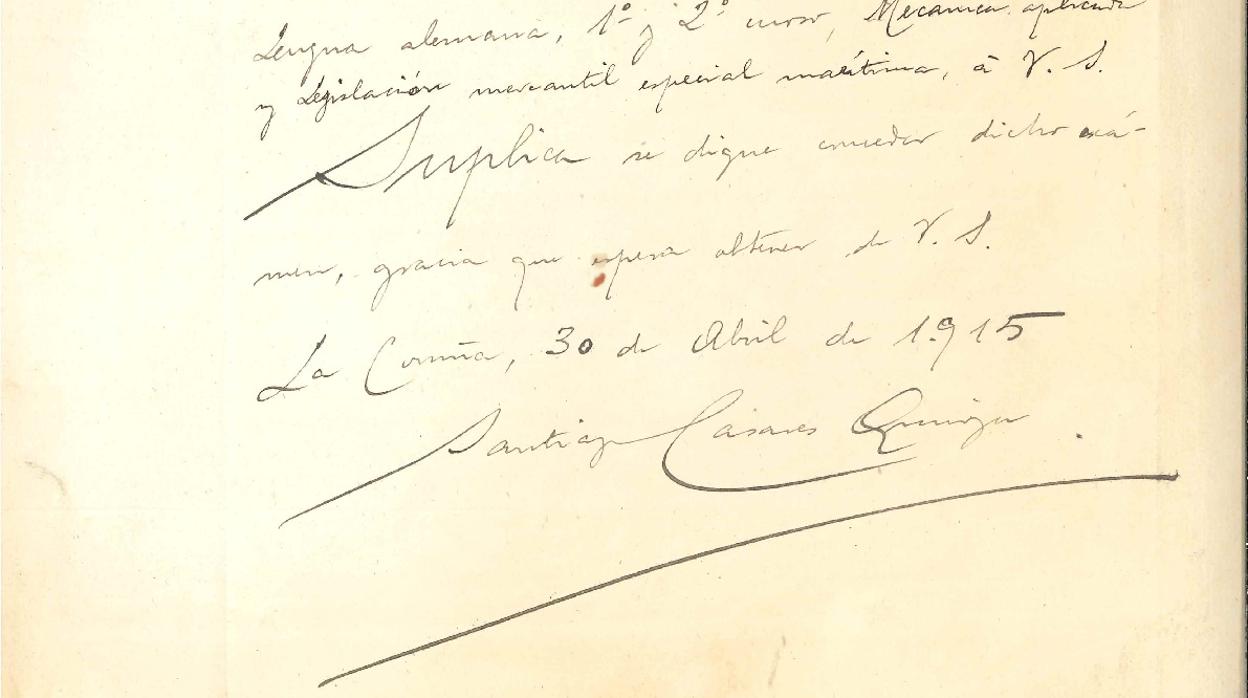 Lengua alemana, 1º y 2º curso, Mecánica aplicada
y Legislación mercantil especial marítima, á V. S.
Suplica se digne conceder dicho exá-
men, gracia que espera obtener de V. S.
La Coruña, 30 de Abril de 1.915
Santiago Casares Quiroga